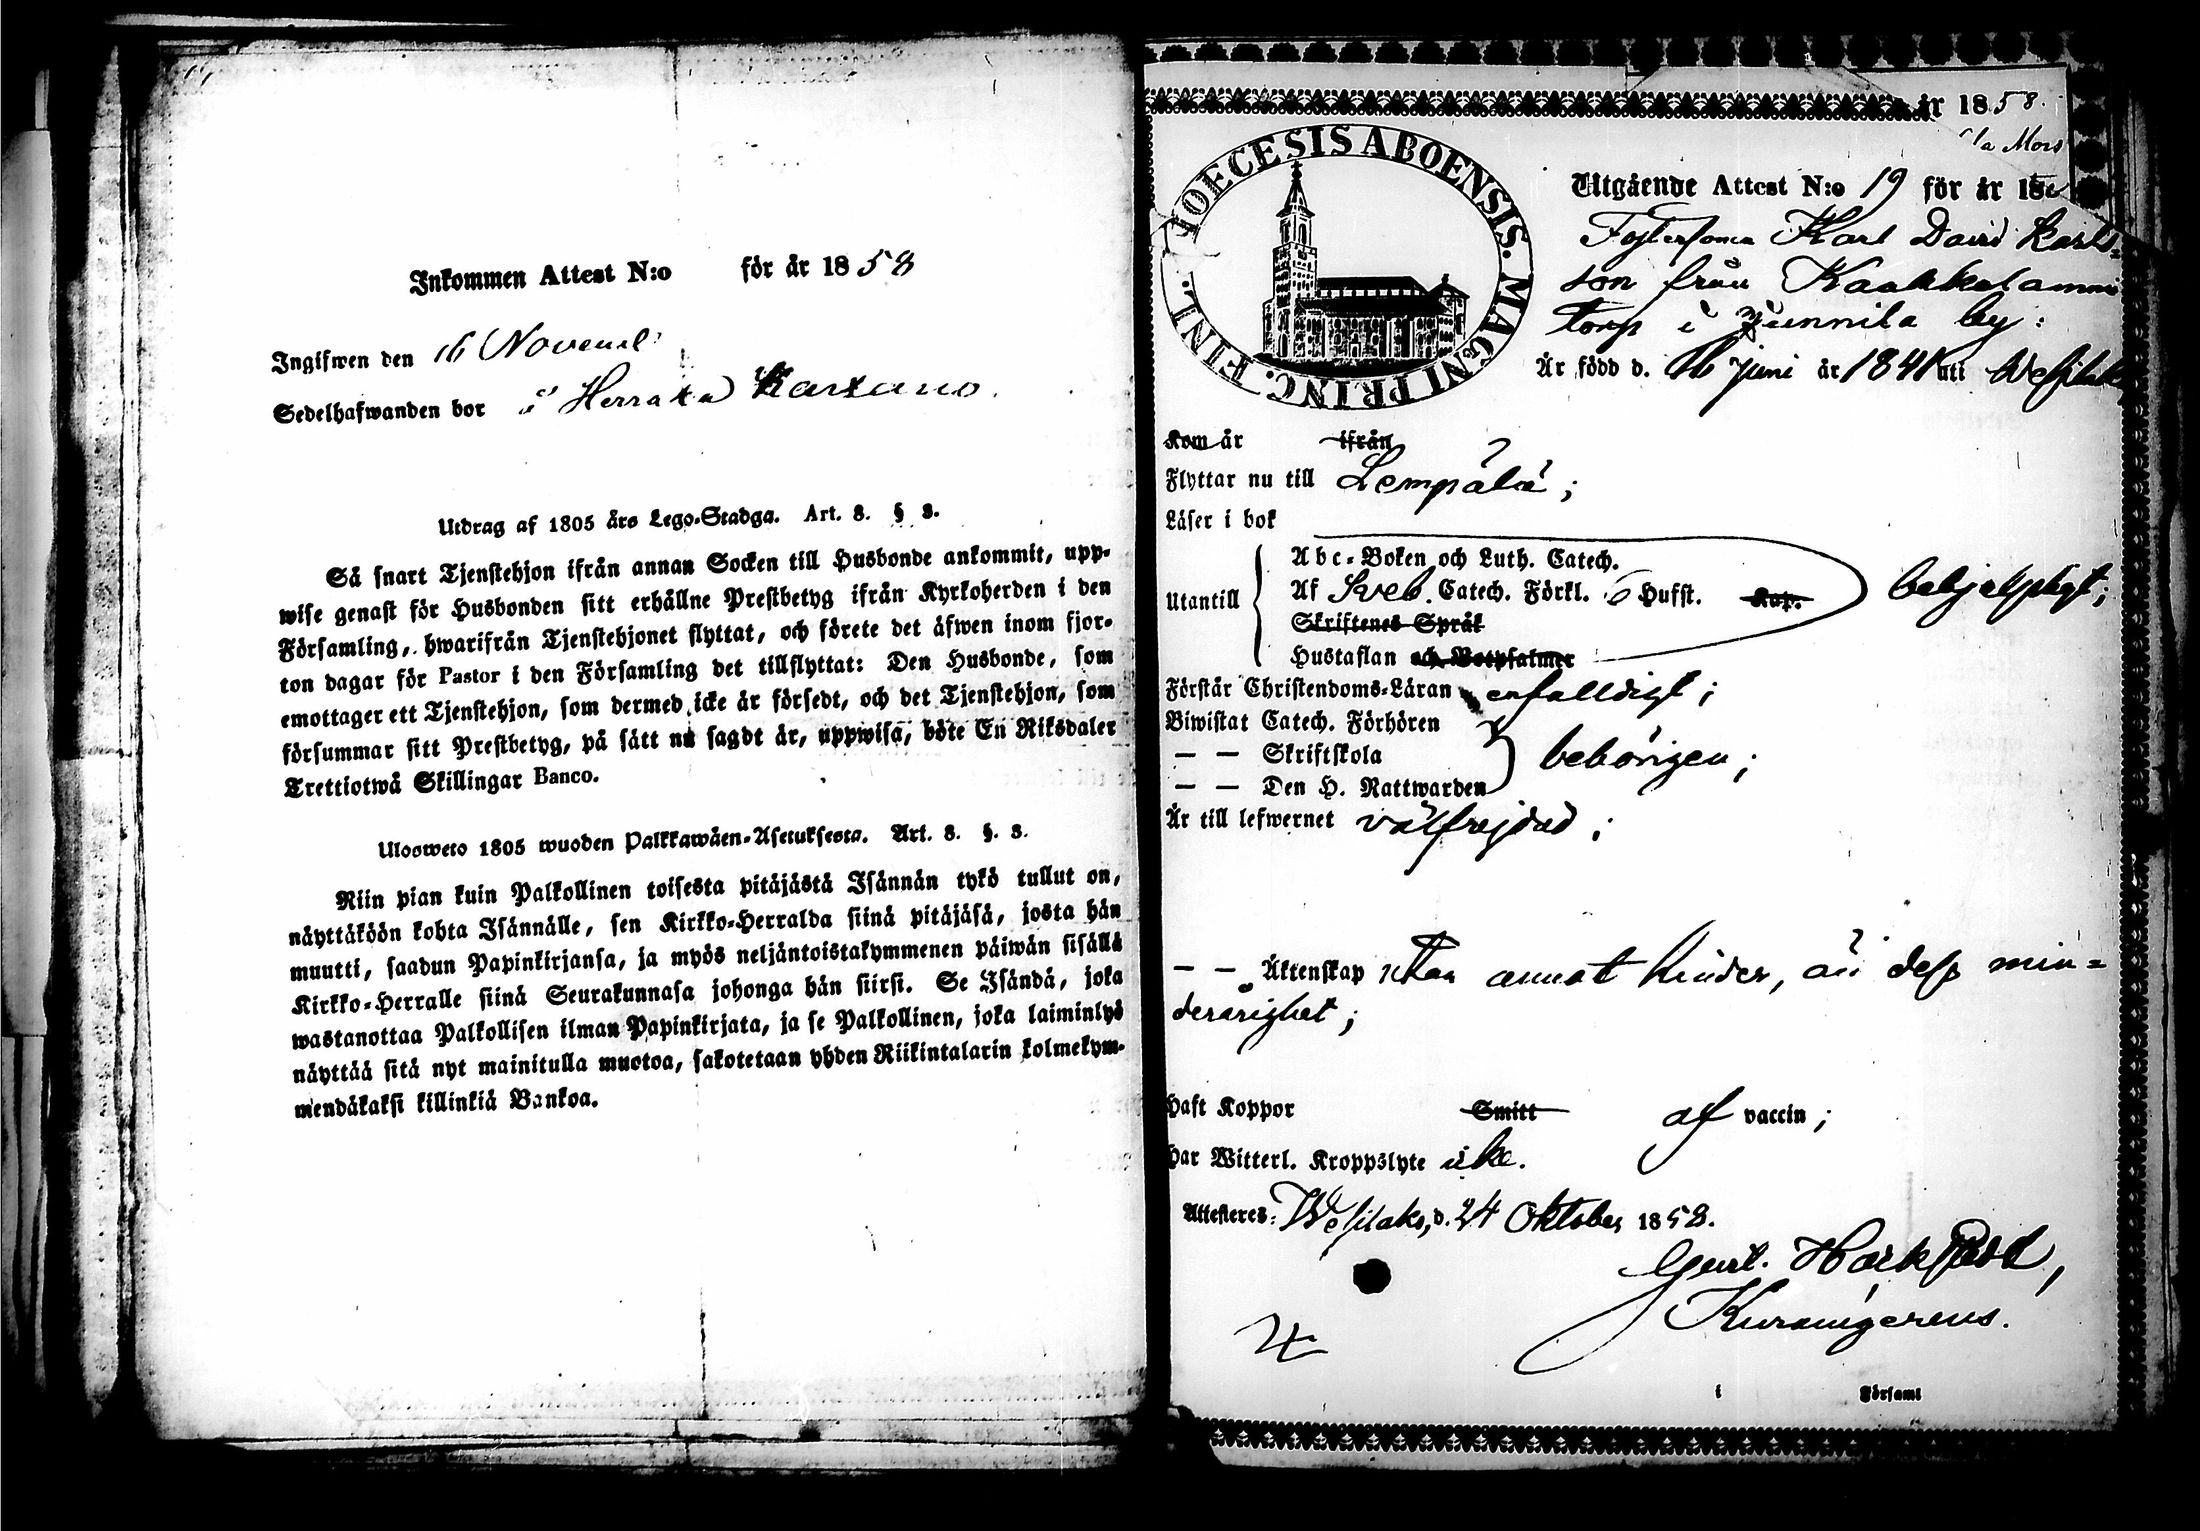 Inkommen Attest N:o för år 1858
Ingifwen den 16 Novemb
Sedelhafwanden bor i Herrala
Utdrag af 1805 års Lego-Stadga. Art. 8. § 3.
Så snart Tjenstehjon ifrån annan Socken till Husbonde ankommit, upp-
wise genast för Husbonden sitt erhållne Prestbetyg ifrån Kyrkoherden i den
Församling, hwarifrån Tjenstehjonet flyttat, och förete det äfwen inom fjor-
ton dagar för Pastor i den Församling det tillflyttat: Den Husbonde, som
emottager ett Tjenstehjon, som dermed icke är försedt, och det Tjenstehjon, som
försummar sitt Prestbetyg, på sätt nu sagdt är, uppwisa, böte En Riksdaler
Trettiotwå Skillingar Banco.
Ulosweto 1805 wuoden Palkkawäen-Asetuksesta. Art. 8. §. 3.
Niin pian kuin Palkollinen toisesta pitäjästä Isännän tykö tullut on,
näyttäköön kohta Isännälle, sen Kirkko-Herralda siinä pitäjäsä, josta hän
muutti, saadun Papinkirjansa, ja myös neljäntoistakymmenen päiwän sisällä
Kirkko-Herralle siinä Seurakunnasa johonga hän siirsi. Se Isändä, joka
wastanottaa Palkollisen ilman Papinkirjata, ja se Palkollinen, joka laiminlyö
näyttää sitä nyt mainitulla muotoa, sakotetaan yhden Riikintalarin kolmekym-
mendäkaksi killinkiä Bankoa.
år 1858.
DIOECESIS ABOENSIS. MAGNI PRINC. FINL.
Utgående Attest N:o 19 för år 185
Fostersonen Karl David Karls-
son från Kaakkolammi
torp i Junnila by:
Är född d. 16 Juni år 1841 uti Wesilaks
Kom år ifrån
Flyttar nu till Lempälä;
Läser i bok
Utantill
Abc-Boken och Luth. Catech.
Af Sveb. Catech. Förkl. 6 Hufst. Kap.
Skriftenes Språk
Hustaflan och Botpsalmer
behjelpligt;
Förstår Christendoms-Läran enfalldigt;
Biwistat Catech. Förhören
— — Skriftskola
— — Den H. Nattwarden
behörigen;
Är till lefwernet välfrejdad;
— — Äktenskap utan annat hinder, än dess min-
derårighet;
Haft Koppor Smitt af vaccin;
Har Witterl. Kroppslyte icke.
Attesteras: Wesilaks, d. 24 Oktober 1858.
Gust.
i Församl